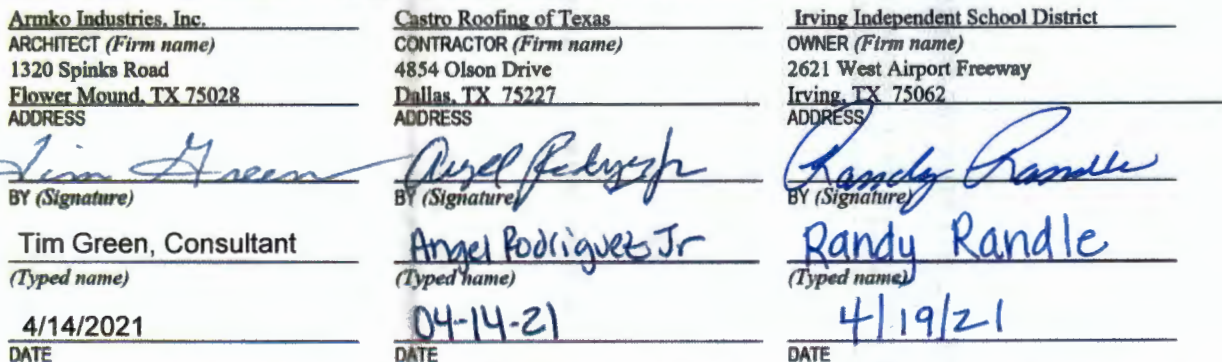 Armko Industries, Inc.
ARCHITECT (Firm name)
1320 Spinks Road
Flower Mound, TX 75028
ADDRESS
Tim Green
BY (Signature)
Tim Green, Consultant
(Typed name)
4/14/2021
DATE
Castro Roofing of Texas
CONTRACTOR (Firm name)
4854 Olson Drive
Dallas, TX 75227
ADDRESS
BY (Signature)
Angel Rodriguez Jr
(Typed name)
04-14-21
DATE
Irving Independent School District
OWNER (Firm name)
2621 West Airport Freeway
Irving, TX 75062
ADDRESS
Randy Randle
BY (Signature)
Randy Randle
(Typed name)
4/19/21
DATE